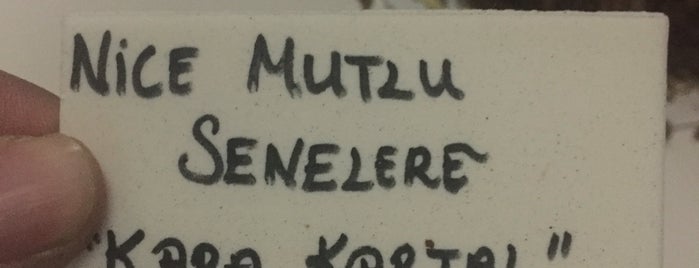 NiCE MUTLU
SENELERE
"KARA KARTAL"